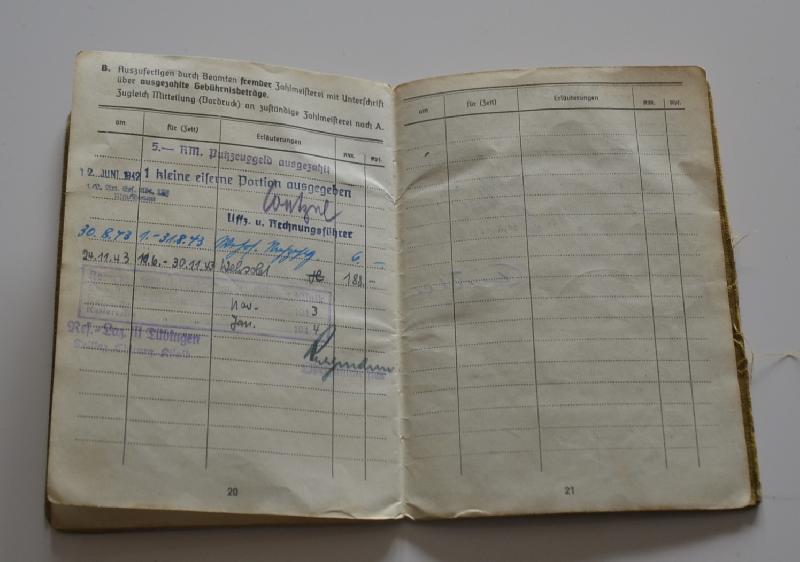 B. Auszufertigen durch Beamten fremder Zahlmeisterei mit Unterschrift
über ausgezahlte Gebührnisbeträge.
Zugleich Mitteilung (Vordruck) an zuständige Zahlmeisterei nach A.
am für (Zeit) Erläuterungen RM. Rpf.
5.— RM. Putzzeuggeld ausgezahlt
12. JUNI 1942 1 kleine eiserne Portion ausgegeben
Uffz. u. Rechnungsführer
30.8.43 1.-31.8.43 6 —
24.11.43 19.6.-30.11.43 Wehrsold 188.—
Nov. 1943
Jan. 1944
Res.-Laz. II Tübingen
20
am für (Zeit) Erläuterungen RM. Rpf.
21